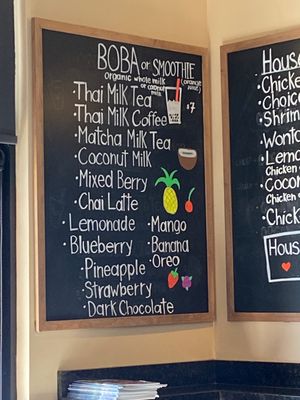 BOBA or SMOOTHIE
Organic whole milk
or coconut
milk
(orange
juice)
7
·Thai Milk Tea
·Thai Milk Coffee
·Matcha Milk Tea
·Coconut Milk
·Mixed Berry
·Chai Latte
·Lemonade
·Blueberry
·Mango
·Banana
·Oreo
·Pineapple
·Strawberry
·Dark Chocolate
House
Chicken
Choice
Shrim
Wonto
Lemo
Chicken
Cocon
Chicken
·Chick
Hous